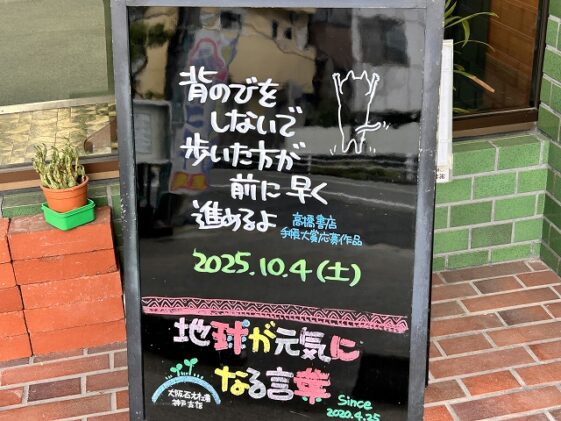 背のびを
しないで
歩いた方が
前に早く
進めるよ
高橋書店
手帳大賞応募作品
2025.10.4(土)
地球が元気に
なる言葉
大阪石材工業
神戸支店
Since
2020.4.25